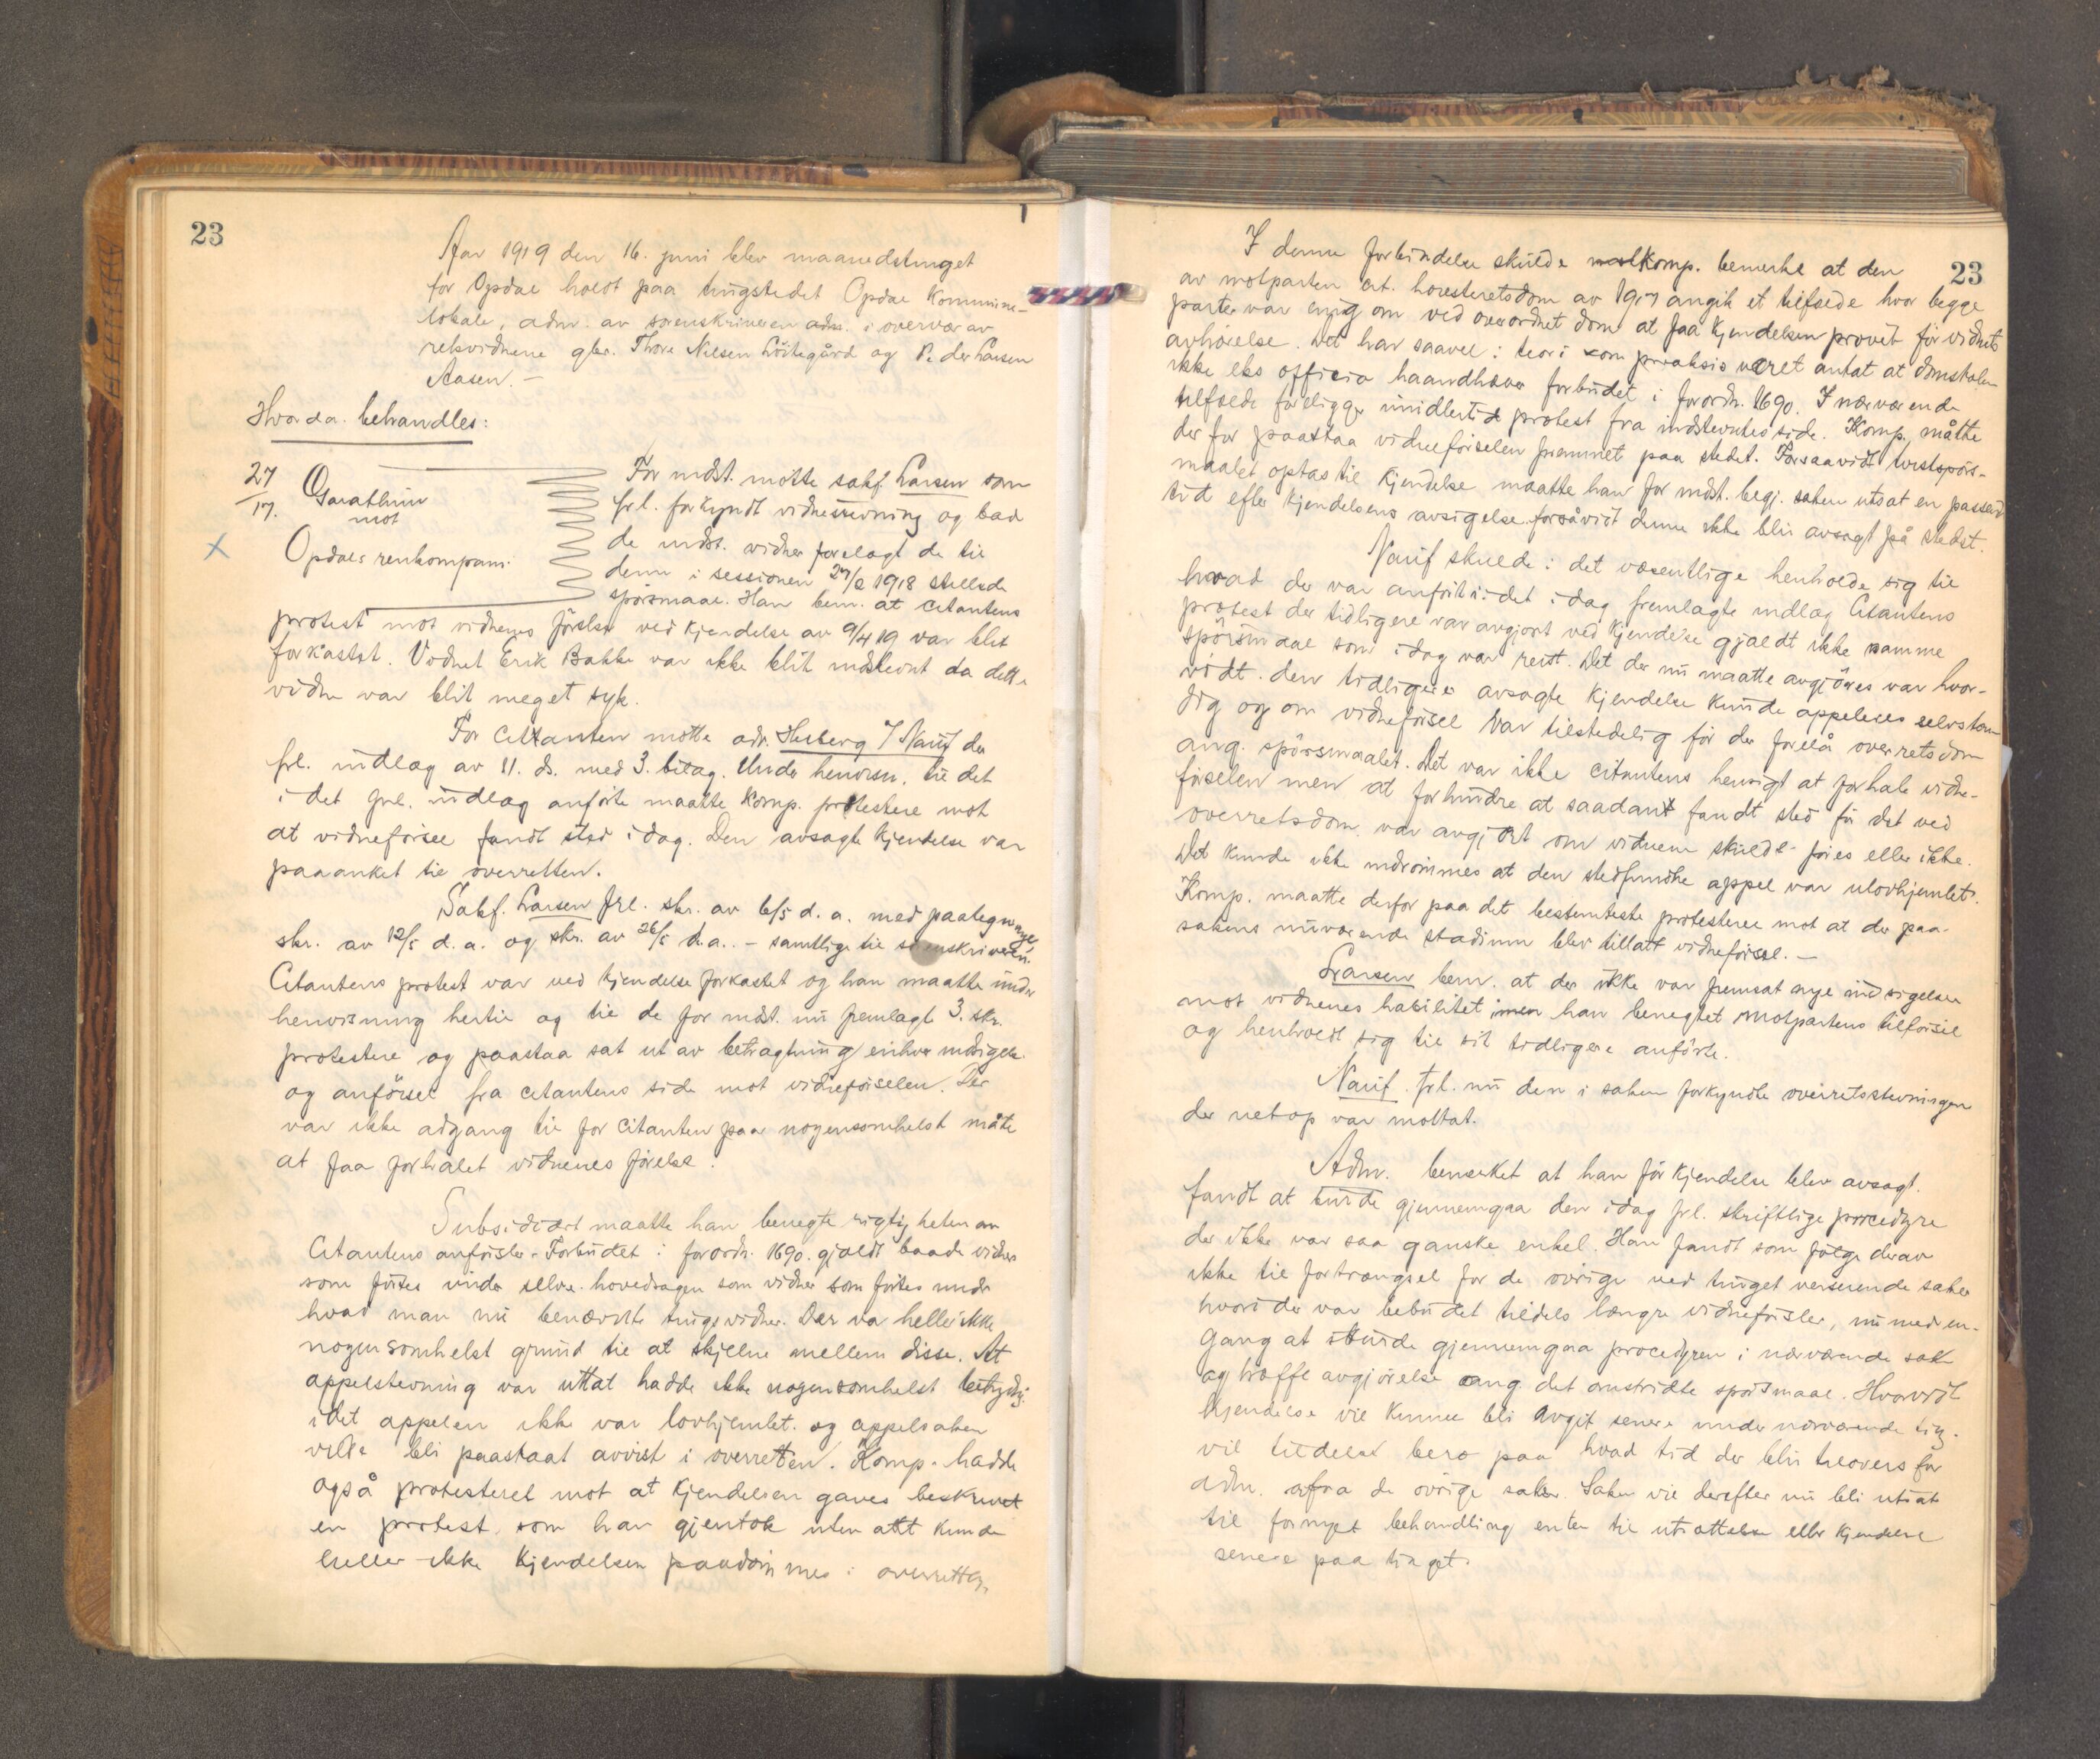 23
Aar 1919 den 16. juni blev maanedstinget
for Opdal holdt paa tingstedet Opdal kommune-
lokale, adm. av sorenskriveren adm. i overvær av
retsvidnene gbr. Thore Nilsen Löitegård og Peder Larsen
Aasen. —
Hvorda. behandles:
27/17.
Garathun
mot
Opdals renkompani.
For indst. mötte sakf. Larsen som
frl. forkyndt vidnestevning og bad
de indst. vidner forelagt de til
dem i sessionen 27/2 1918 stillede
spörsmaal. Han bem. at citantens
protest mot vidnenes förelse ved kjendelse av 9/4 19 var blit
forkastet. Vidnet Erik Bakke var ikke blit indstevnt da dette
vidne var blit meget syk.
For citanten mötte adv. Hesberg v/ Nauf der
frl. indlæg av 11. ds. med 3. bilag. Under henvisn. til det
i det frl. indlæg anförte maatte komp. protestere mot
at vidneförsel fandt sted idag. Den avsagte kjendelse var
paaanket til overretten.
Sakf. Larsen frl. skr. av 6/5 d. a. med paategning,
skr. av 12/5 d. a. og skr. av 26/5 d. a. – samtlige til sorenskriveren.
Citantens protest var ved kjendelse forkastet og han maatte under
henvisning hertil og til de for indst. nu fremlagte 3. skr.
protestere og paastaa sat ut av betragtning enhver indsigelse
og anförsel fra citantens side mot vidneförselen. Der
var ikke adgang til for citanten paa nogensomhelst måte
at faa forhalet vidnenes förelse.
Subsidiært maatte han benegte rigtigheten av
Citantens anförsler. Forbudet i forordn. 1690. gjaldt baade vidner
som förtes under selve hovedsagen som vidner som förtes under
hvad man nu benævnte tingsvidner. Der var heller ikke
nogensomhelst grund til at skjelne mellem disse. At
appelstevning var uttat hadde ikke nogensomhelst betydn.
idet appelen ikke var lovhjemlet. og appelsaken
vilde bli paastaat avvist i overretten. Komp. hadde
også protesteret mot at kjendelsen gaves beskrevet
en protest som han gjentok uten at kunde
heller ikke kjendelsen paadömmes i overretten.
23
I denne forbindelse skulde komp. bemerke at den
av motparten cit. höiesteretsdom av 1917 angik et tilfælde hvor begge
parter var enig om ved overordnet dom at faa kjendelsen prövet för vidnets
avhörelse. Det har saavel i teori som praksis været antat at domstolen
ikke eks officio haandhæver forbudet i forordn. 1690. I nærværende
tilfælde foreligger imidlertid protest fra indstevntes side. Komp. måtte
derfor paastaa vidneförselen fremmet paa stedet. Forsaavidt tvistspörs-
maalet optas til kjendelse maatte han for indst. begj. saken utsat en passende
tid efter kjendelsens avsigelse forsåvidt denne ikke blir avsagt på stedet.
Nauf skulde i det væsentlige henholde sig til
hvad der var anfört i det idag fremlagte indlæg. Citantens
protest der tidligere var avgjort ved kjendelse gjaldt ikke samme
spörsmaal som idag var reist. Det der nu maatte avgjöres var hvor-
vidt den tidligere avsagte kjendelse kunde appeleres selvstæn-
dig og om vidneförsel var tilstedelig för der forelå overretsdom
ang. spörsmaalet. Det var ikke citantens hensigt at forhale vidne-
förselen men at forhindre at saadant fandt sted för det ved
overretsdom var avgjort om vidnene skulde föres eller ikke.
Det kunde ikke indrömmes at den stedfundne appel var ulovhjemlet.
Komp. maatte derfor paa det bestemteste protestere mot at der paa
sakens nuværende stadium blev tillatt vidneförsel. —
Larsen bem. at der ikke var fremsat nye indsigelser
mot vidnenes habilitet men han benegtet motpartens tilförsel
og henholdt sig til sit tidligere anförte.
Nauf. frl. nu den i saken forkyndte overretsstevningen
der netop var mottat.
Adm. bemerket at han för kjendelse blev avsagt.
fandt at burde gjennemgaa den idag frl. skriftlige procedyre
der ikke var saa ganske enkel. Han fandt som fölge derav
ikke til fortrængsel for de övrige ved tinget verserende saker
hvori der var bebudet tildels længre vidneförsler, nu med en-
gang at burde gjennemgaa procedyren i nærværende sak
og træffe avgjörelse ang. det omstridte spörsmaal. Hvorvidt
kjendelse vil kunne bli avgit senere under nærværende ting.
vil tildels bero paa hvad tid der blir tilovers for
adm. fra de övrige saker. Saken vil derefter nu bli utsat
til fornyet behandling enten til utsættelse eller kjendelse
senere paa tinget.